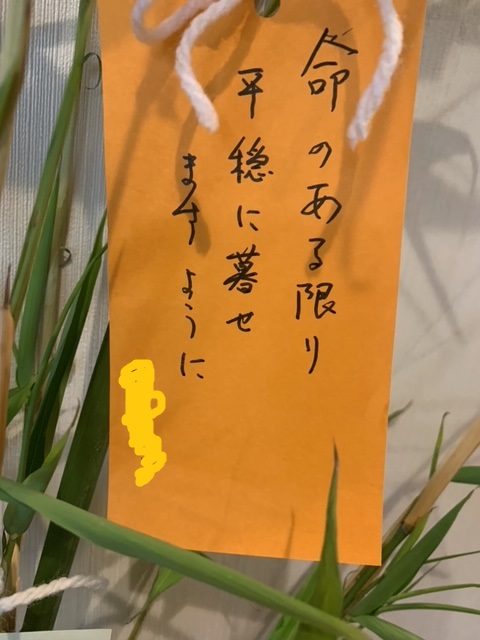 命のある限り
平穏に暮せ
ますように